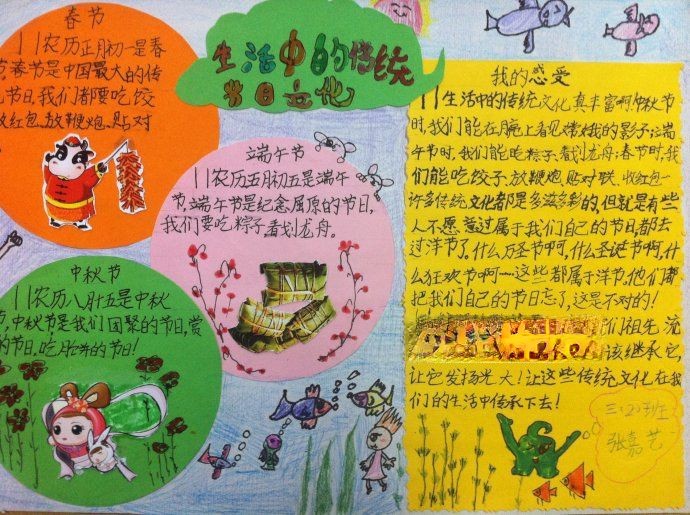 生活中的传统
节日文化
春节
农历正月初一是春
节春节是中国最大的传
节日,我们都要吃饺
放红包、放鞭炮、贴对
端午节
农历五月初五是端午
节,端午节是纪念屈原的节日,
我们要吃粽子、看划龙舟。
中秋节
农历八月十五是中秋
节,中秋节是我们团聚的节日,赏
的节日,吃月饼的节日!
我的感受
生活中的传统文化真丰富啊中秋节
时,我们能在月亮上看见嫦娥的影子;端
午节时,我们能吃粽子、看划龙舟;春节时,我
们能吃饺子、放鞭炮、贴对联、收红包…
许多传统文化都是多滋多彩的,但就是有些
人不愿意过属于我们自己的节日,都去
过洋节了。什么万圣节啊,什么圣诞节啊,什
么狂欢节啊……这些都属于洋节。他们都
把我们自己的节日忘了,这是不对的!
们祖先流
该继承它,
让它发扬光大!让这些传统文化在我
们的生活中传承下去!
三.(2)班
张嘉艺